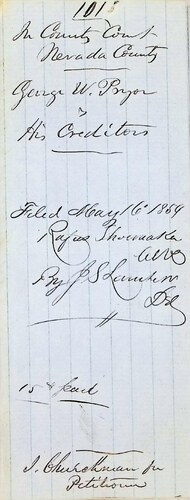 101
In County Court
Nevada County
George W. Pryor
vs
His Creditors
Filed May 16th 1859
Rufus Shoemaker
Clk
By J S Lambert
Dy
15 & paid
J. Churchman for
Petitioner